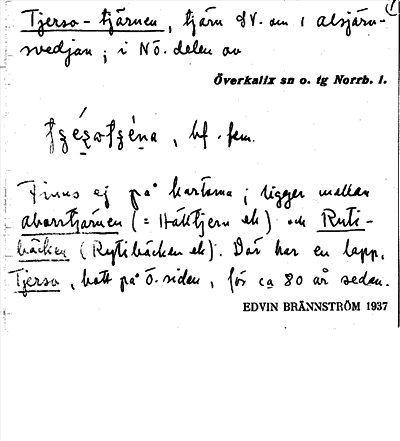 Tjersa-tjärnen, tjärn SV. om 1 alsjärv-
svedjan; i NÖ. delen av
Överkalix sn o. tg Norrb. l.
, bf. fem.
Finns ej på kartorna; ligger mellan
aborrtjärnen (= Hättjern ek) och Ruti-
bäcken (Rytibäcken ek). Där har en lapp,
Tjersa, bott på Ö. sidan, för ca 80 år sedan.
EDVIN BRÄNNSTRÖM 1937